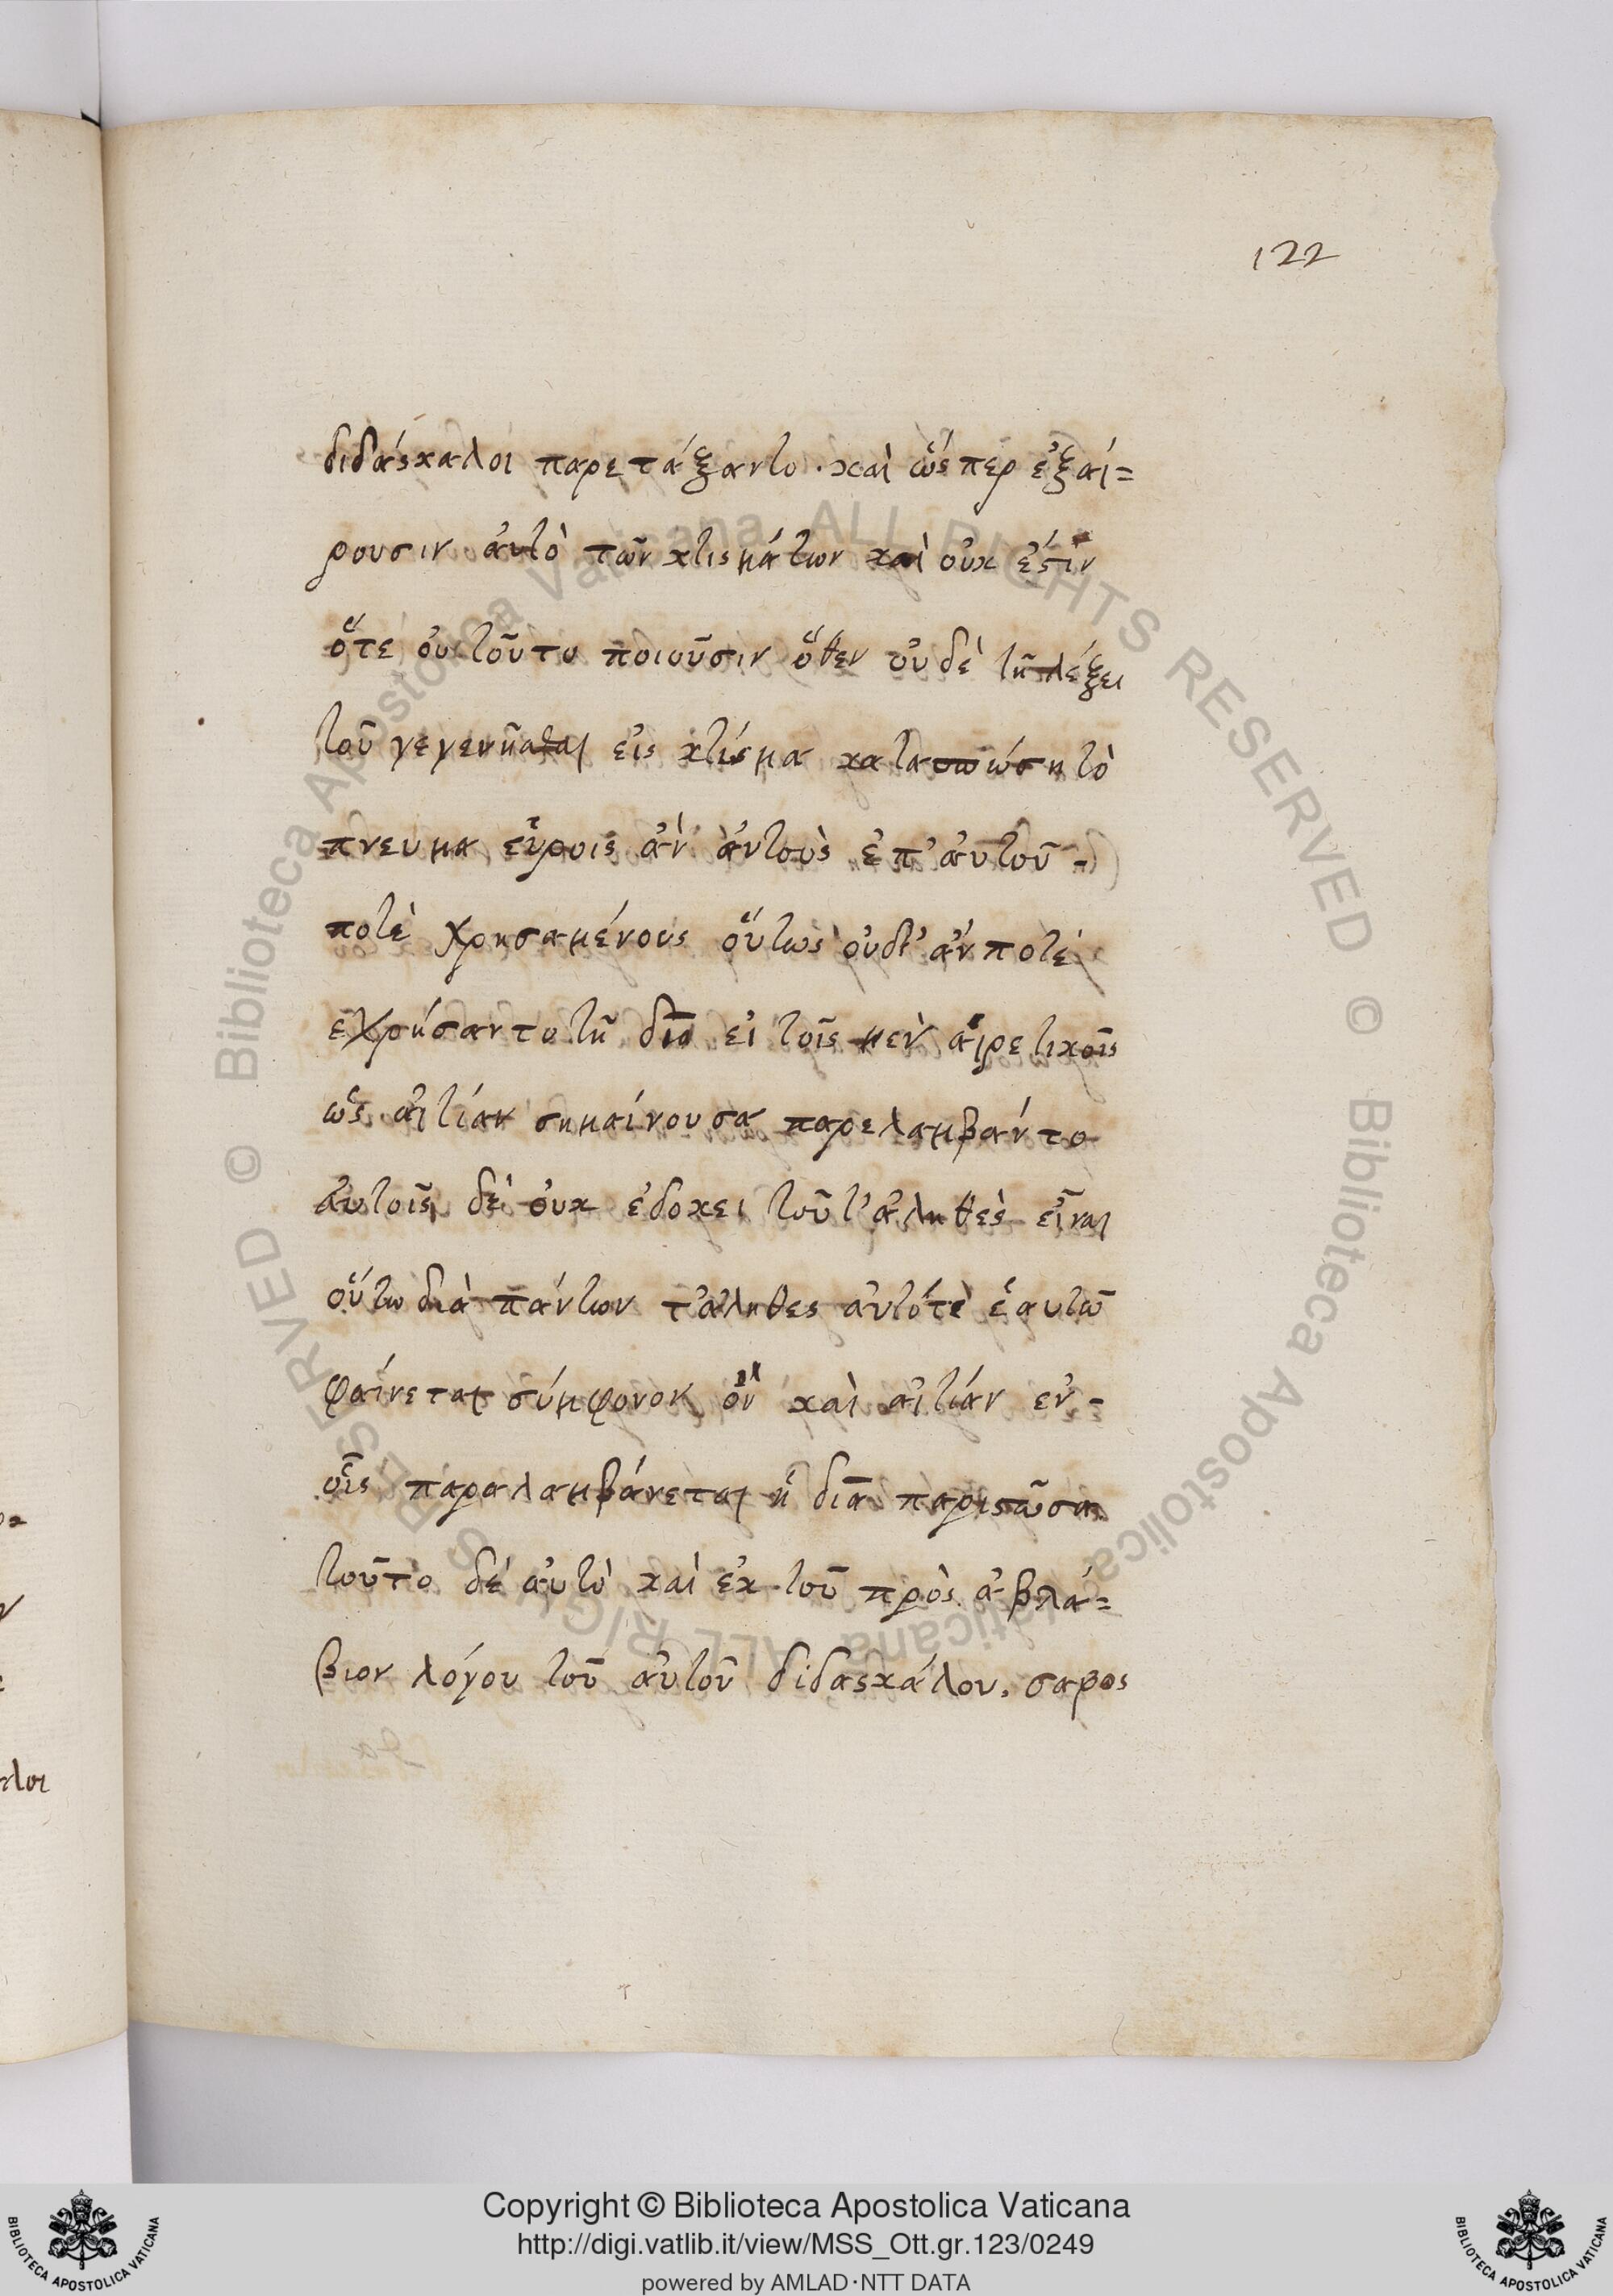 122
διδάσκαλοι παρετάξαντο · καὶ ὥσπερ ἐξαί=
ρουσιν αὐτὸ τῶν κτισμάτων καὶ οὐκ ἔστιν
ὅτε οὐ τοῦτο ποιοῦσιν ὅθεν οὐδὲ τῆ λέξει
τοῦ γεγενῆσθαι εἰς κτίσμα
πνευμα εὕροις ἂν ἀυτοὺς ἐπ' ἀυτοῦ -
ποτὲ χρησαμένους οὕτως οὐδ' ἄν ποτέ
ἐχρήσαντο τῆ δῖα εἰ τοῖς μὲν αἱρετικοῖς
ὡς αἰτίαν σημαίνουσα παρελαμβάντο
ἀυτοῖς δὲ ὀυκ ἐδοκει τοῦτ' ἀληθὲς εἶναι
οὕτω διὰ πάντων τ'ἀληθες ἀυτότὲ ἑαυτῶ
φαίνεται σύμφονον ὂν καὶ αἰτίαν ἐν -
οἷς παραλαμβάνεται ἡ δῖα παριστῶσα
τοῦτο δέ ἀυτὸ καὶ ἐκ τοῦ πρὸς ἀβλά=
βιον λόγου τοῦ ἀυτοῦ διδασκάλου, σαρος
λοι
Copyright © Biblioteca Apostolica Vaticana
http://digi.vatlib.it/view/MSS_Ott.gr.123/0249
powered by AMLAD·NTT DATA
BIBLIOTECA APOSTOLICA VATICANA
BIBLIOTECA APOSTOLICA VATICANA
© Biblioteca Apostolica Vaticana ALL RIGHTS RESERVED © Biblioteca Apostolica Vaticana ALL RIGHTS RESERVED